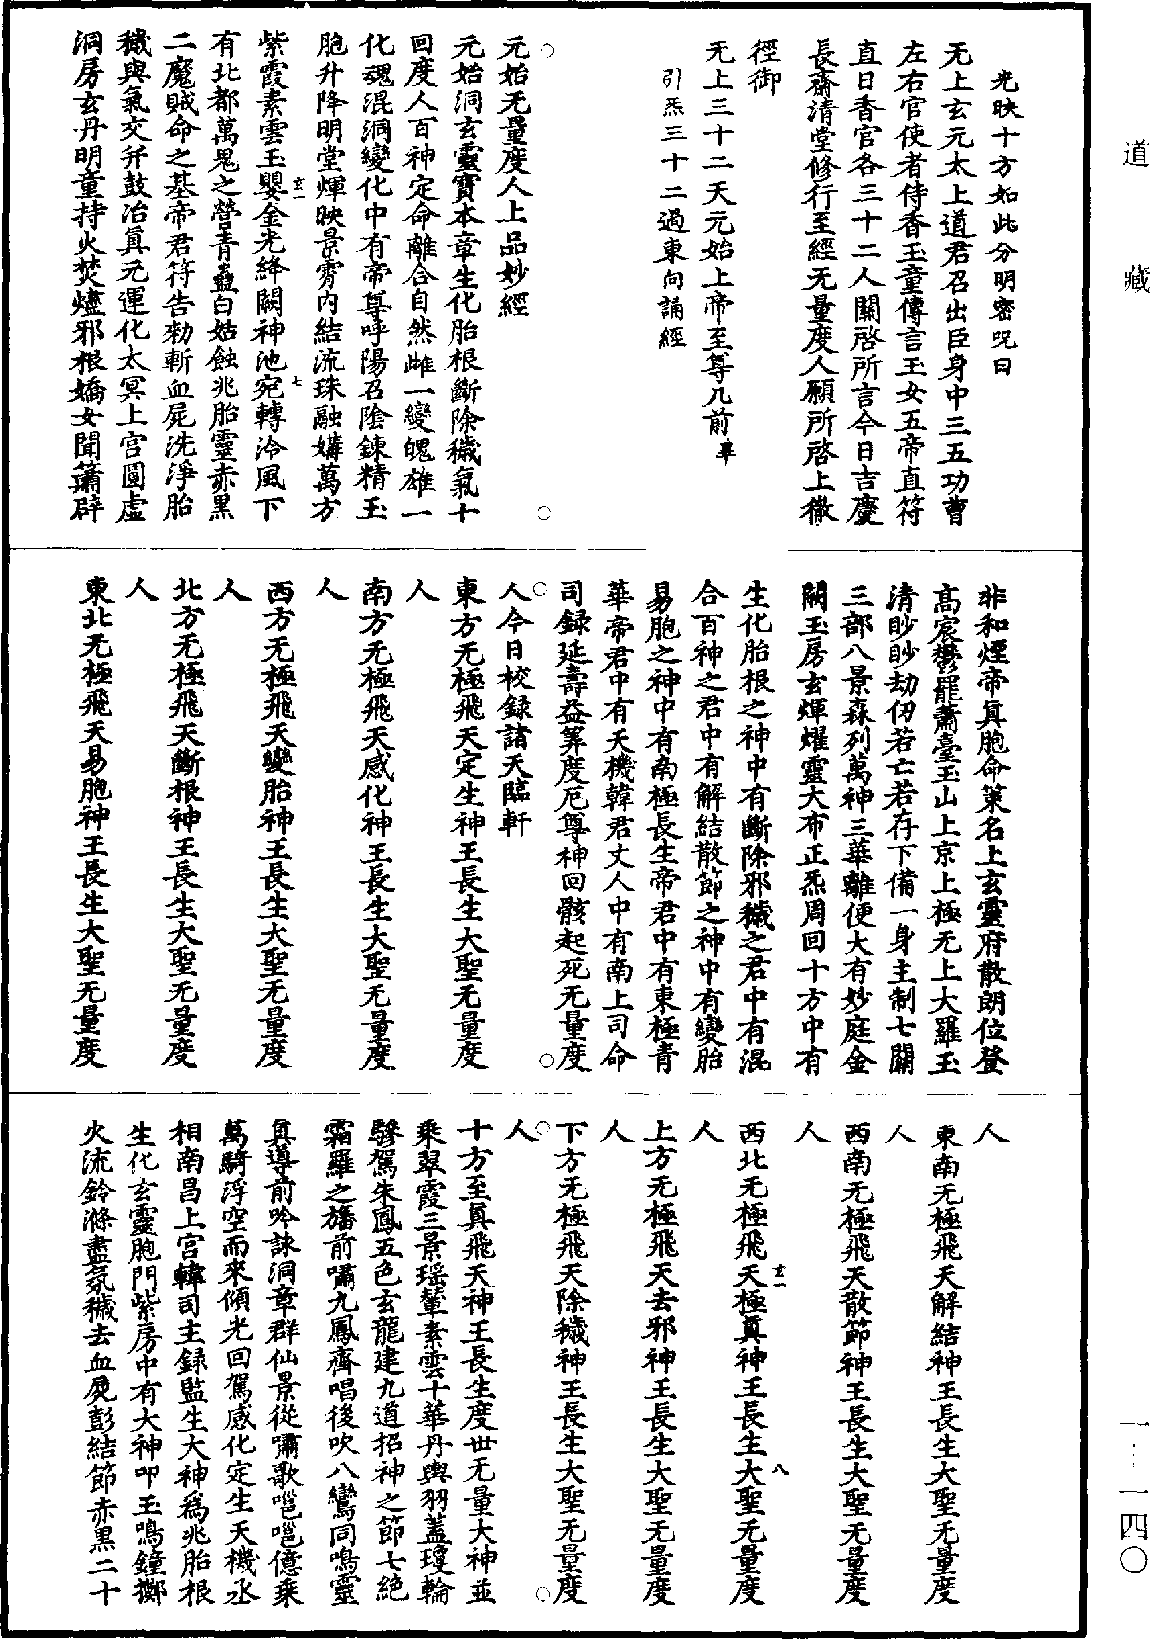 道藏
光映十方如此分明密咒曰
无上玄元太上道君召出臣身中三五功曹
左右官使者侍香玉童傳言玉女五帝直符
直日香官各三十二人關啓所言今日吉慶
長齋清堂修行至經无量度人願所啓上徹
徑御
无上三十二天元始上帝至尊几前畢
引炁三十二過東向誦經
元始无量度人上品妙經
元始洞玄靈寶本章生化胎根斷除穢氣十
回度人百神定命離合自然雌一變魄雄一
化魂混洞變化中有帝尊呼陽召陰鍊精玉
胞升降明堂煇映景霄內結流珠融媾萬方
紫霞素雲玉嬰金光絳闕神池宛轉泠風下
玄一
七
有北都萬鬼之營青蠱白姑蝕兆胎靈赤黑
二魔賊命之基帝君符告勑斬血屍洗淨胎
穢與氣交并鼓冶真元運化太冥上宮圓虛
洞房玄丹明童持火焚燼邪根嬌女聞簫辟
非和煙帝真胞命策名上玄靈府散朗位登
高宸鬱羅蕭臺玉山上京上極无上大羅玉
清眇眇劫仞若亡若存下備一身主制七關
三部八景森列萬神三華離便大有妙庭金
闕玉房玄煇燿靈大布正炁周回十方中有
生化胎根之神中有斷除邪穢之君中有混
合百神之君中有解結散節之神中有變胎
易胞之神中有南極長生帝君中有東極青
華帝君中有天機韓君丈人中有南上司命
司錄延壽益筭度厄尊神回骸起死无量度
人今日校錄諸天臨軒
東方无極飛天定生神王長生大聖无量度
人
南方无極飛天感化神王長生大聖无量度
人
西方无極飛天變胎神王長生大聖无量度
人
北方无極飛天斷根神王長生大聖无量度
人
東北无極飛天易胞神王長生大聖无量度
人
東南无極飛天解結神王長生大聖无量度
人
西南无極飛天散節神王長生大聖无量度
人
西北无極飛天極真神王長生大聖无量度
玄一
八
人
上方无極飛天去邪神王長生大聖无量度
人
下方无極飛天除穢神王長生大聖无量度
人
十方至真飛天神王長生度世无量大神並
乘翠霞三景瑶輦素雲十華丹輿羽蓋瓊輪
驂駕朱鳳五色玄龍建九道招神之節七絕
霜羅之旛前嘯九鳳齊唱後吹八鸞同鳴靈
真導前吟詠洞章群仙景從嘯歌邕邕億乘
萬騎浮空而來傾光回駕感化定生天機丞
相南昌上宮韓司主錄監生大神爲兆胎根
生化玄靈胞門紫房中有大神叩玉鳴鐘擲
火流鈴滌盡氛穢去血屍彭結節赤黑二十
一——一四〇